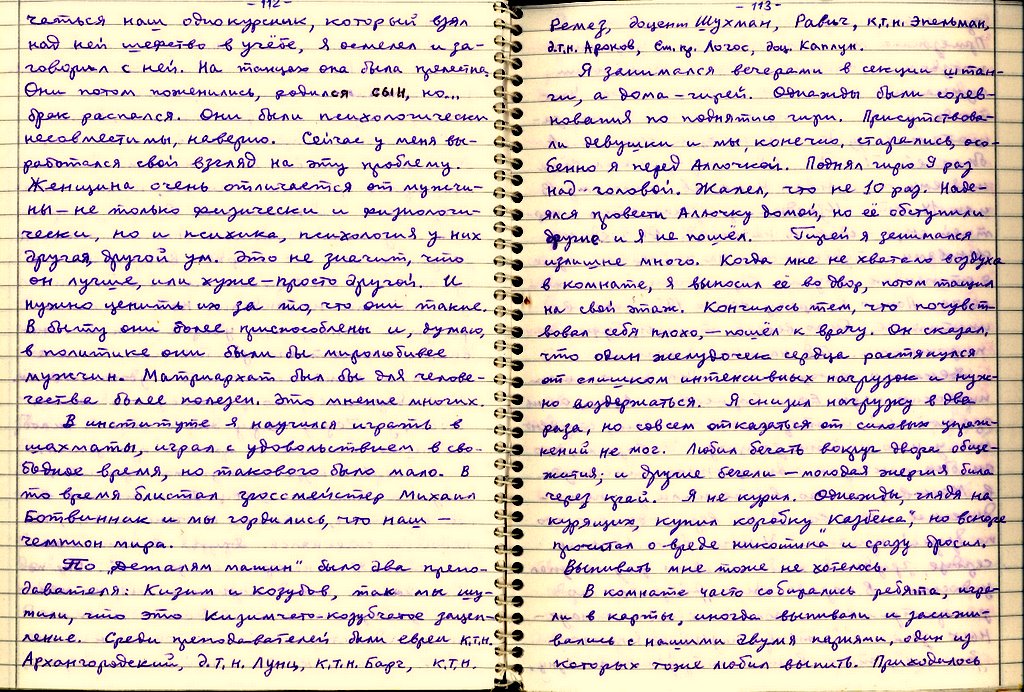 - 112 -
чаться наш однокурсник, который взял
над ней шефство в учёбе, я осмелел и за-
говорил с ней. На танцах она была прелестна.
Они потом поженились, родился сын, но...
брак распался. Они были психологически
несовместимы, наверно. Сейчас у меня вы-
работался свой взгляд на эту проблему.
Женщина очень отличается от мужчи-
ны – не только физически и физиологи-
чески, но и психика, психология у них
другая, другой ум. Это не значит, что
он лучше, или хуже – просто другой. И
нужно ценить их за то, что они такие.
В быту они более приспособлены и, думаю,
в политике они были бы миролюбивее
мужчин. Матриархат был бы для челове-
чества более полезен. Это мнение многих.
В институте я научился играть в
шахматы, играл с удовольствием в сво-
бодное время, но такового было мало. В
то время блистал гроссмейстер Михаил
Ботвинник и мы гордились, что наш –
чемпион мира.
По „Деталям машин" было два препо-
давателя: Кизим и Козубов, так мы шу-
тили, что это Кизимчето-козубчатое зацеп-
ление. Среди преподавателей были евреи к.т.н.
Архангородский, д.т.н. Лунц, к.т.н. Барг, к.т.н.
- 113 -
Ремез, доцент Шухман, Равич, к.т.н. Эпельман,
д.т.н. Аронов, ст. пр. Логос, доц. Каплун.
Я занимался вечерами в секции штан-
ги, а дома – гирей. Однажды были сорев-
нования по поднятию гири. Присутствова-
ли девушки и мы, конечно, старались, осо-
бенно я перед Аллочкой. Поднял гирю 9 раз
над головой. Жалел, что не 10 раз. Наде-
ялся провести Аллочку домой, но её обступили
другие и я не пошёл. Гирей я занимался
излишне много. Когда мне не хватало воздуха
в комнате, я выносил её во двор, потом тащил
на свой этаж. Кончилось тем, что почувст-
вовал себя плохо, – пошёл к врачу. Он сказал,
что один желудочек сердца растянулся
от слишком интенсивных нагрузок и нуж-
но воздержаться. Я снизил нагрузку в два
раза, но совсем отказаться от силовых упраж-
нений не мог. Любил бегать вокруг двора обще-
жития; и другие бегали – молодая энергия била
через край. Я не курил. Однажды, глядя на
курящих, купил коробку „Казбека", но вскоре
прочитал о вреде никотина и сразу бросил.
Выпивать мне тоже не хотелось.
В комнате часто собирались ребята, игра-
ли в карты, иногда выпивали и засижи-
вались с нашими двумя парнями, один из
которых тоже любил выпить. Приходилось